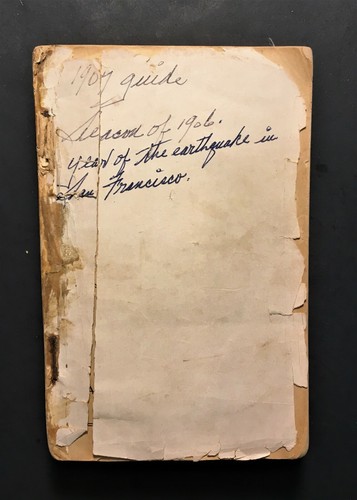 1907 guide
Seacon of 1906.
year of the earthquake in
San Francisco.